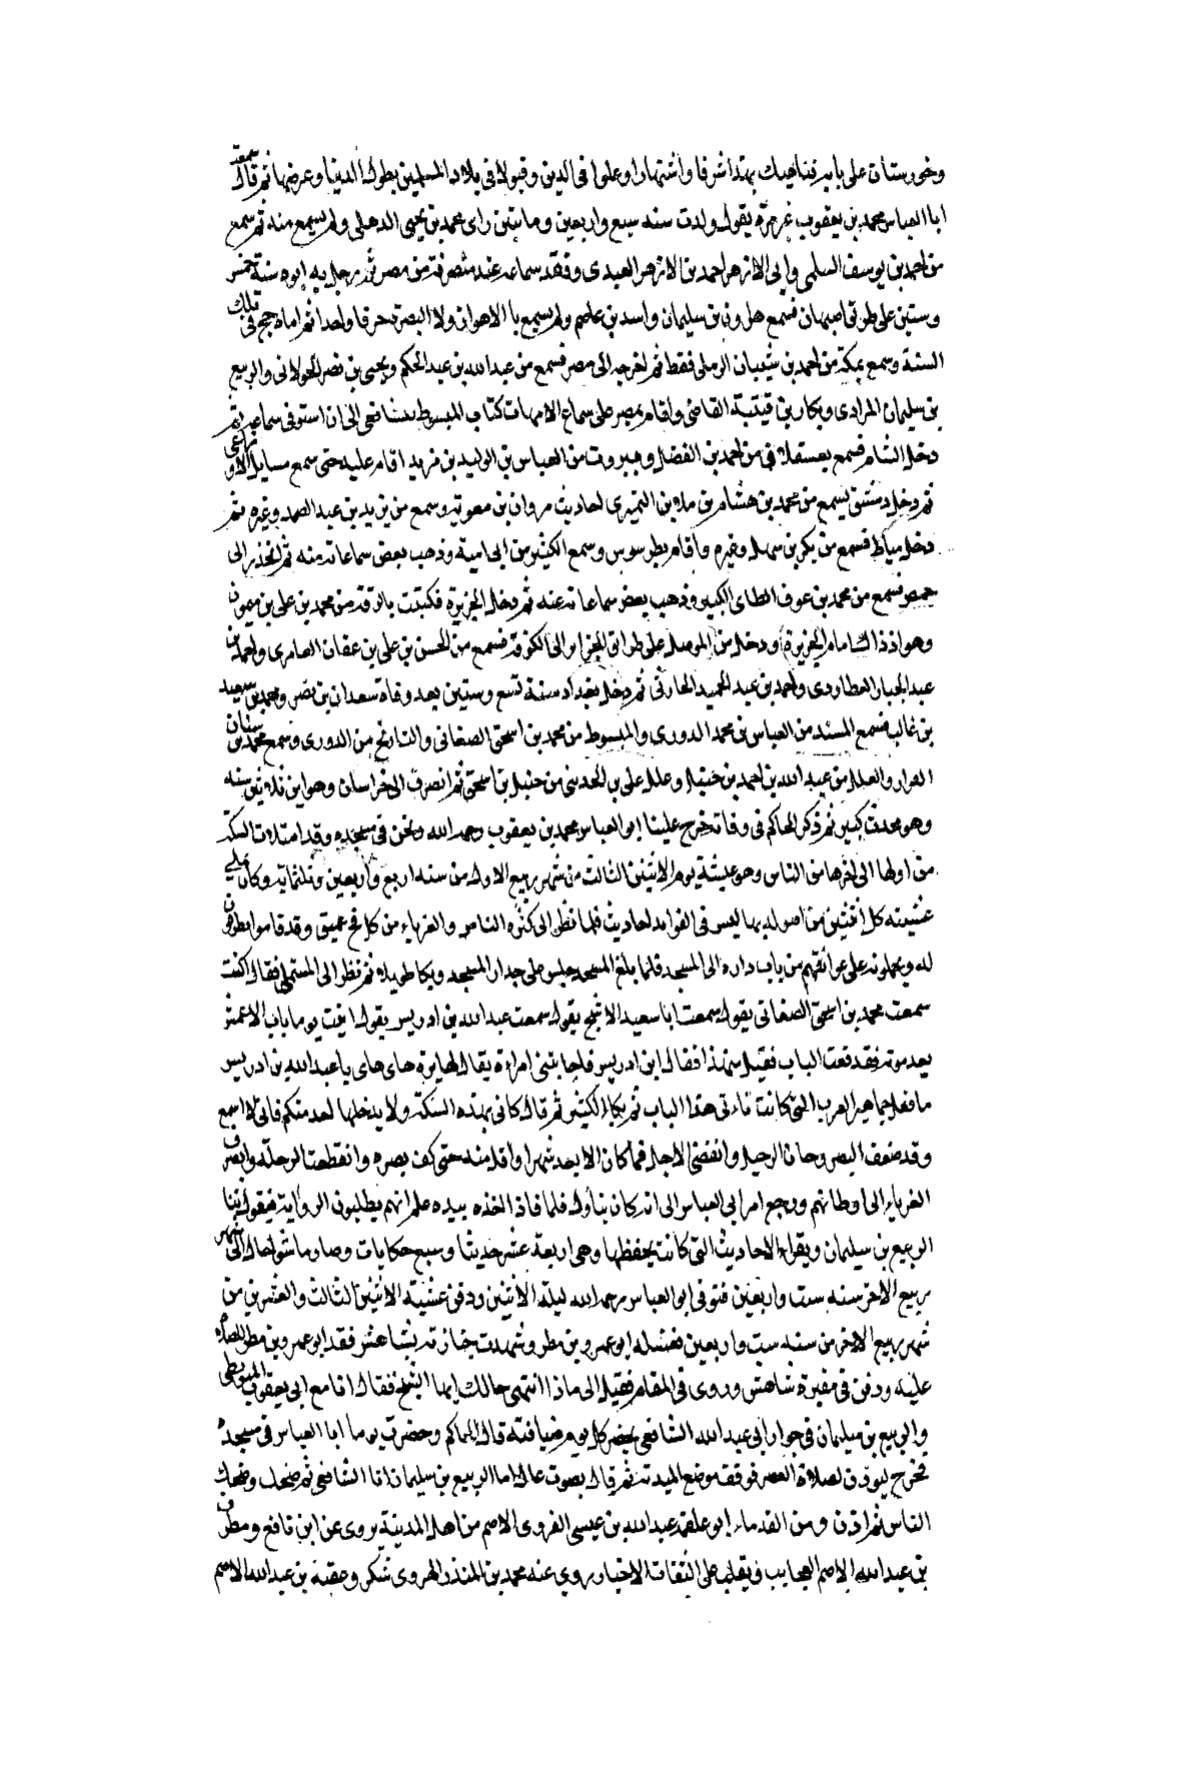 وخوروستان على بابه فناهيك بهذا شرفا واشتهارا وعلوا فى الدين وقبولا فى بلاد المسلمين بطول الدنيا وعرضها ثم قال سمعت
ابا العباس محمد بن يعقوب غير مرة يقول ولدت سنه سبع واربعين وماتين راى محمد بن يحيى الذهلى ولم يسمع منه ثم سمع
من احمد بن يوسف السلمى وابى الازهر احمد بن الازهر العبدى وفقد سماعه عند منصرفه من مصر ثم رحل به ابوه سنة خمس
وستين على طريق اصبهان فسمع هارون بن سليمان واسيد بن عاصم ولم يسمع بالاهواز ولا البصرة حرفا واحدا ثم اماه حج فى تلك
السنة وسمع بمكة من احمد بن شيبان الرملى فقط ثم اخرجه الى مصر فسمع من عبد الله بن عبد الحكم ويحيى بن نصر الخولانى والربيع
بن سليمان المرادى وبكار بن قيتبة القاضى واقام بمصر على سماع الامهات كتاب المبسوط للشافعى الى ان استوفى سماعه ثم
دخل الشام فسمع بعسقلان من احمد بن الفضل وببيروت من العباس بن الوليد بن مزيد اقام عليه حتى سمع مسايل الاوزاعى
ثم دخل دمشق يسمع من محمد بن هشام بن ملاس النميرى احاديث مروان بن معوية وسمع من يزيد بن عبد الصمد وغيره ثم
دخل دمياط فسمع من بكر بن سهل وغيره واقام بطرسوس وسمع الكثير من ابى امية وذهب بعض سماعاته منه ثم انحذر الى
حمص فسمع من محمد بن عوف الطاى الكبير وذهب بعض سماعاته عنه ثم دخل الجزيرة فكتبت بالرقة من محمد بن على بن ميمون
وهو اذ ذاك امام الجزيرة ودخل من الموصل على طريق الجزاير الى الكوفة فسمع من الحسن بن على بن عفان العامرى واحمد بن
عبد الجبار العطاردى واحمد بن عبد الحميد الحارثى ثم دخل بغداد سنة تسع وستين بعد وفاة سعدان بن نصر ومحمد بن سعيد
بن غالب فسمع المسند من العباس بن محمد الدورى والمبسوط من محمد بن اسحق الصغانى والتاريخ من الدورى وسمع محمد بن سنان
القزاز والعلل من عبد الله بن احمد بن حنبل وعلل على بن المدينى من حنبل بن اسحق ثم انصرف الى خراسان وهو ابن ثلاثين سنه
وهو محدث كبير ثم ذكر الحاكم فى وفاته خرج علينا ابو العباس محمد بن يعقوب رحمه الله ونحن فى مسجده وقد امتلات السكة
من اولها الى اخرها من الناس وهو عيشة يوم الاثنين الثالث من شهر ربيع الاول من سنه اربع واربعين وثلثماية وكان يملى
عشيته كل اثنين من اصوله بها ليس فى الفوايد احاديث فلما نظر الى كثرة الناس والغرباء من كل فج عميق وقد قاموا يطرقون
له ويحملونه على عواتقهم من باب داره الى المسجد فلما بلغ المسجد جلس على جدار المسجد وبكا طويلا ثم نظر الى المستملى فقال اكتب
سمعت محمد بن اسحق الصغانى يقول سمعت ابا سعيد الاشج يقول سمعت عبد الله بن ادريس يقول اتيت يوما باب الاعمش
بعد موته فقد قعت الباب فقيل من ذا فقال ابن ادريس فاجابتنى امراة يقال لها برة هاى هاى يا عبد الله بن ادريس
ما فعل جماهير العرب التى كانت تاتى هذا الباب ثم بكا الكثير ثم قال كانى بهذه السكة ولا يدخلها احد منكم فانى لا اسمع
وقد ضعف البصر وحان الرحيل وانقضى الاجل فما كان الا بعد شهر او اقل منه حتى كف بصره وانقطعت الرحلة وانصرف
الغرباء الى اوطانهم ورجع امر ابى العباس الى انه كان يناول قلما فاذا اخذه بيده علم انهم يطلبون الرواية فيقول ثنا
الربيع بن سليمان ويقراء الاحاديث التى كانت يحفظها وهى اربعة عشر حديثا وسبع حكايات وصار ما شو حال الى شهر
ربيع الاخر سنه ست واربعين فتوفى ابو العباس رحمه الله ليلة الاثنين ودفن عشية الاثنين الثالث والعشرين من
شهر ربيع الاخر من سنه ست واربعين فغسله ابو عمرو بن مطر وشهدت جنازته بشاهنبر فقد ابو عمرو بن مطر للصلاة
عليه ودفن فى مقبرة شاهنبر وروى فى المقام فقيل الى ماذا انتهى حالك ايها الشيخ فقال انا مع ابى يعقوب البويطى
والربيع بن سليمان فى جوار ابى عبد الله الشافعى نحضر كل يوم ضيافته قال الحاكم وحضرت يوما ابا العباس فى مسجده
فخرج ليوذن لصلاة العصر فوقف موضع الميذنة ثم قال بصوت عال انا الربيع بن سليمان انا الشافعى ثم ضحك وضحك
الناس ثم اذن ومن القدماء ابو علقمة عبد الله بن عيسى الفروى الاصم من اهل المدينة يروى عن ابن نافع ومطرف
بن عبد الله الاصم العجايب ويقلب على الثقات الاخبار روى عنه محمد بن المنذر الهروى شكر وعقبة بن عبد الله الاصم